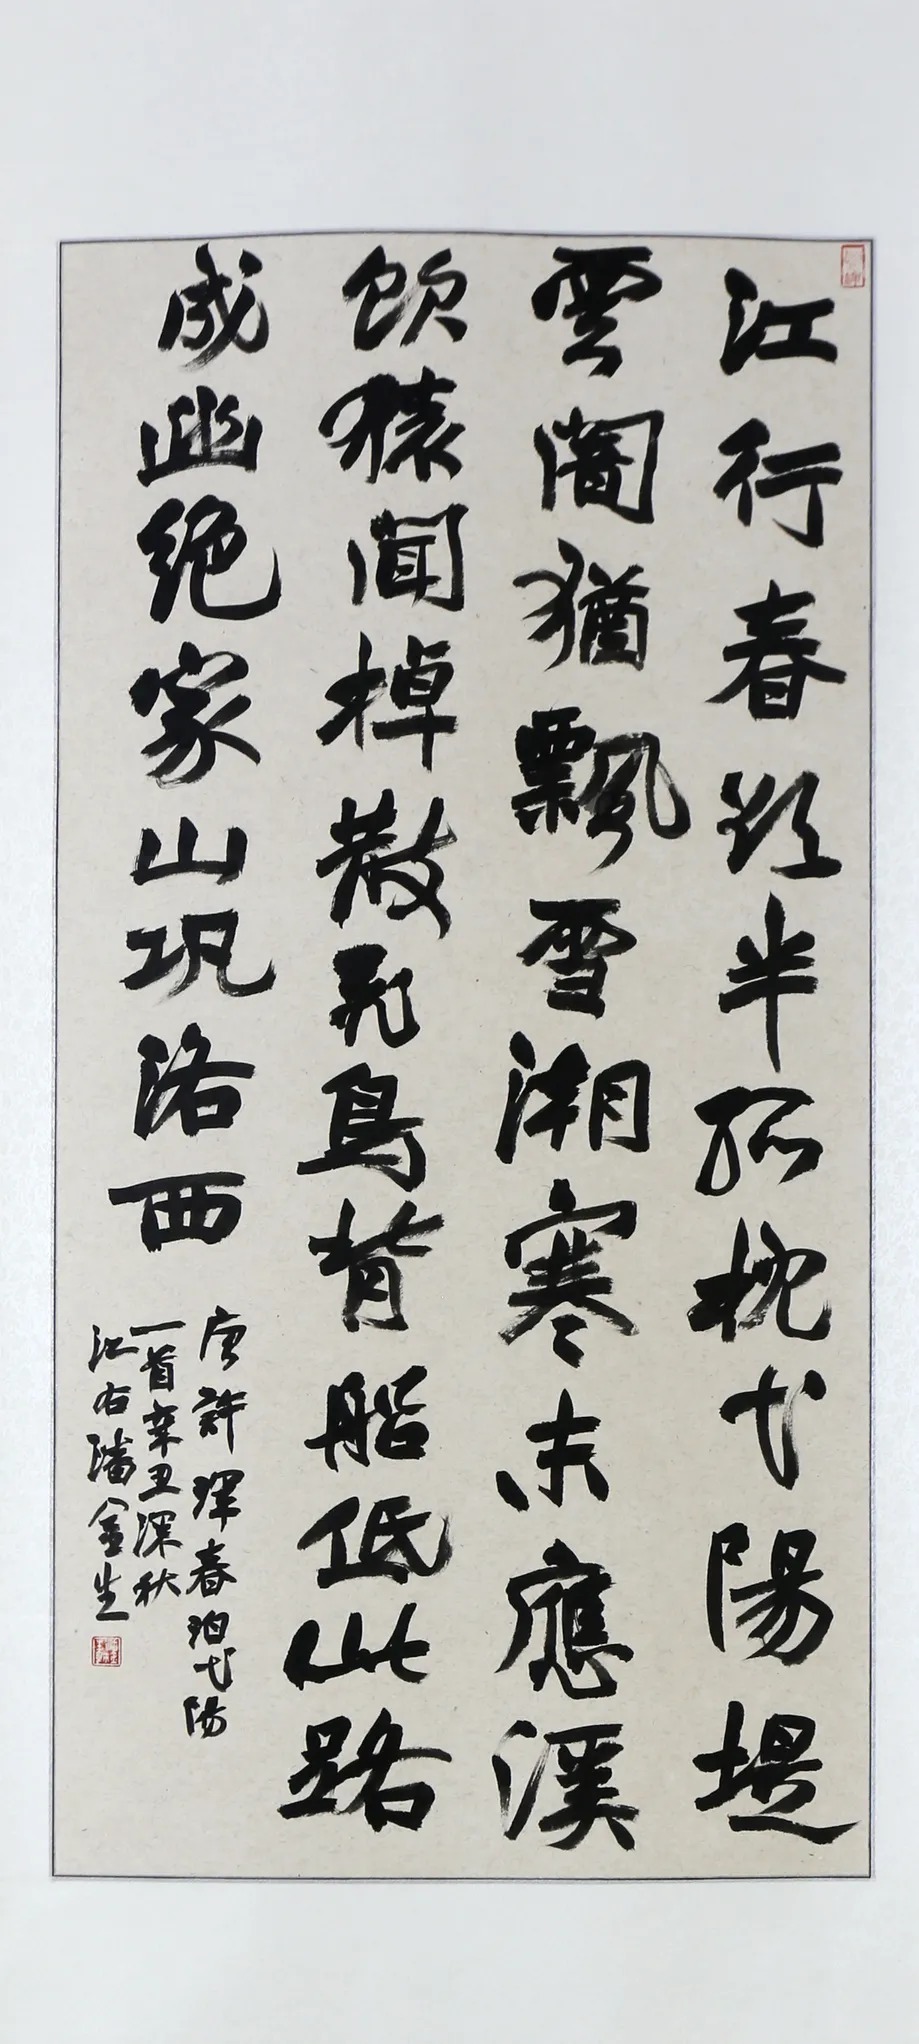 江行春欲半孤枕弋陽堤
雲闇猶飄雪潮寒未應溪
飲猿聞棹散飛鳥背船低此路
成幽絕家山巩洛西
唐許渾春泊弋陽
一首辛丑深秋
江右潘金生